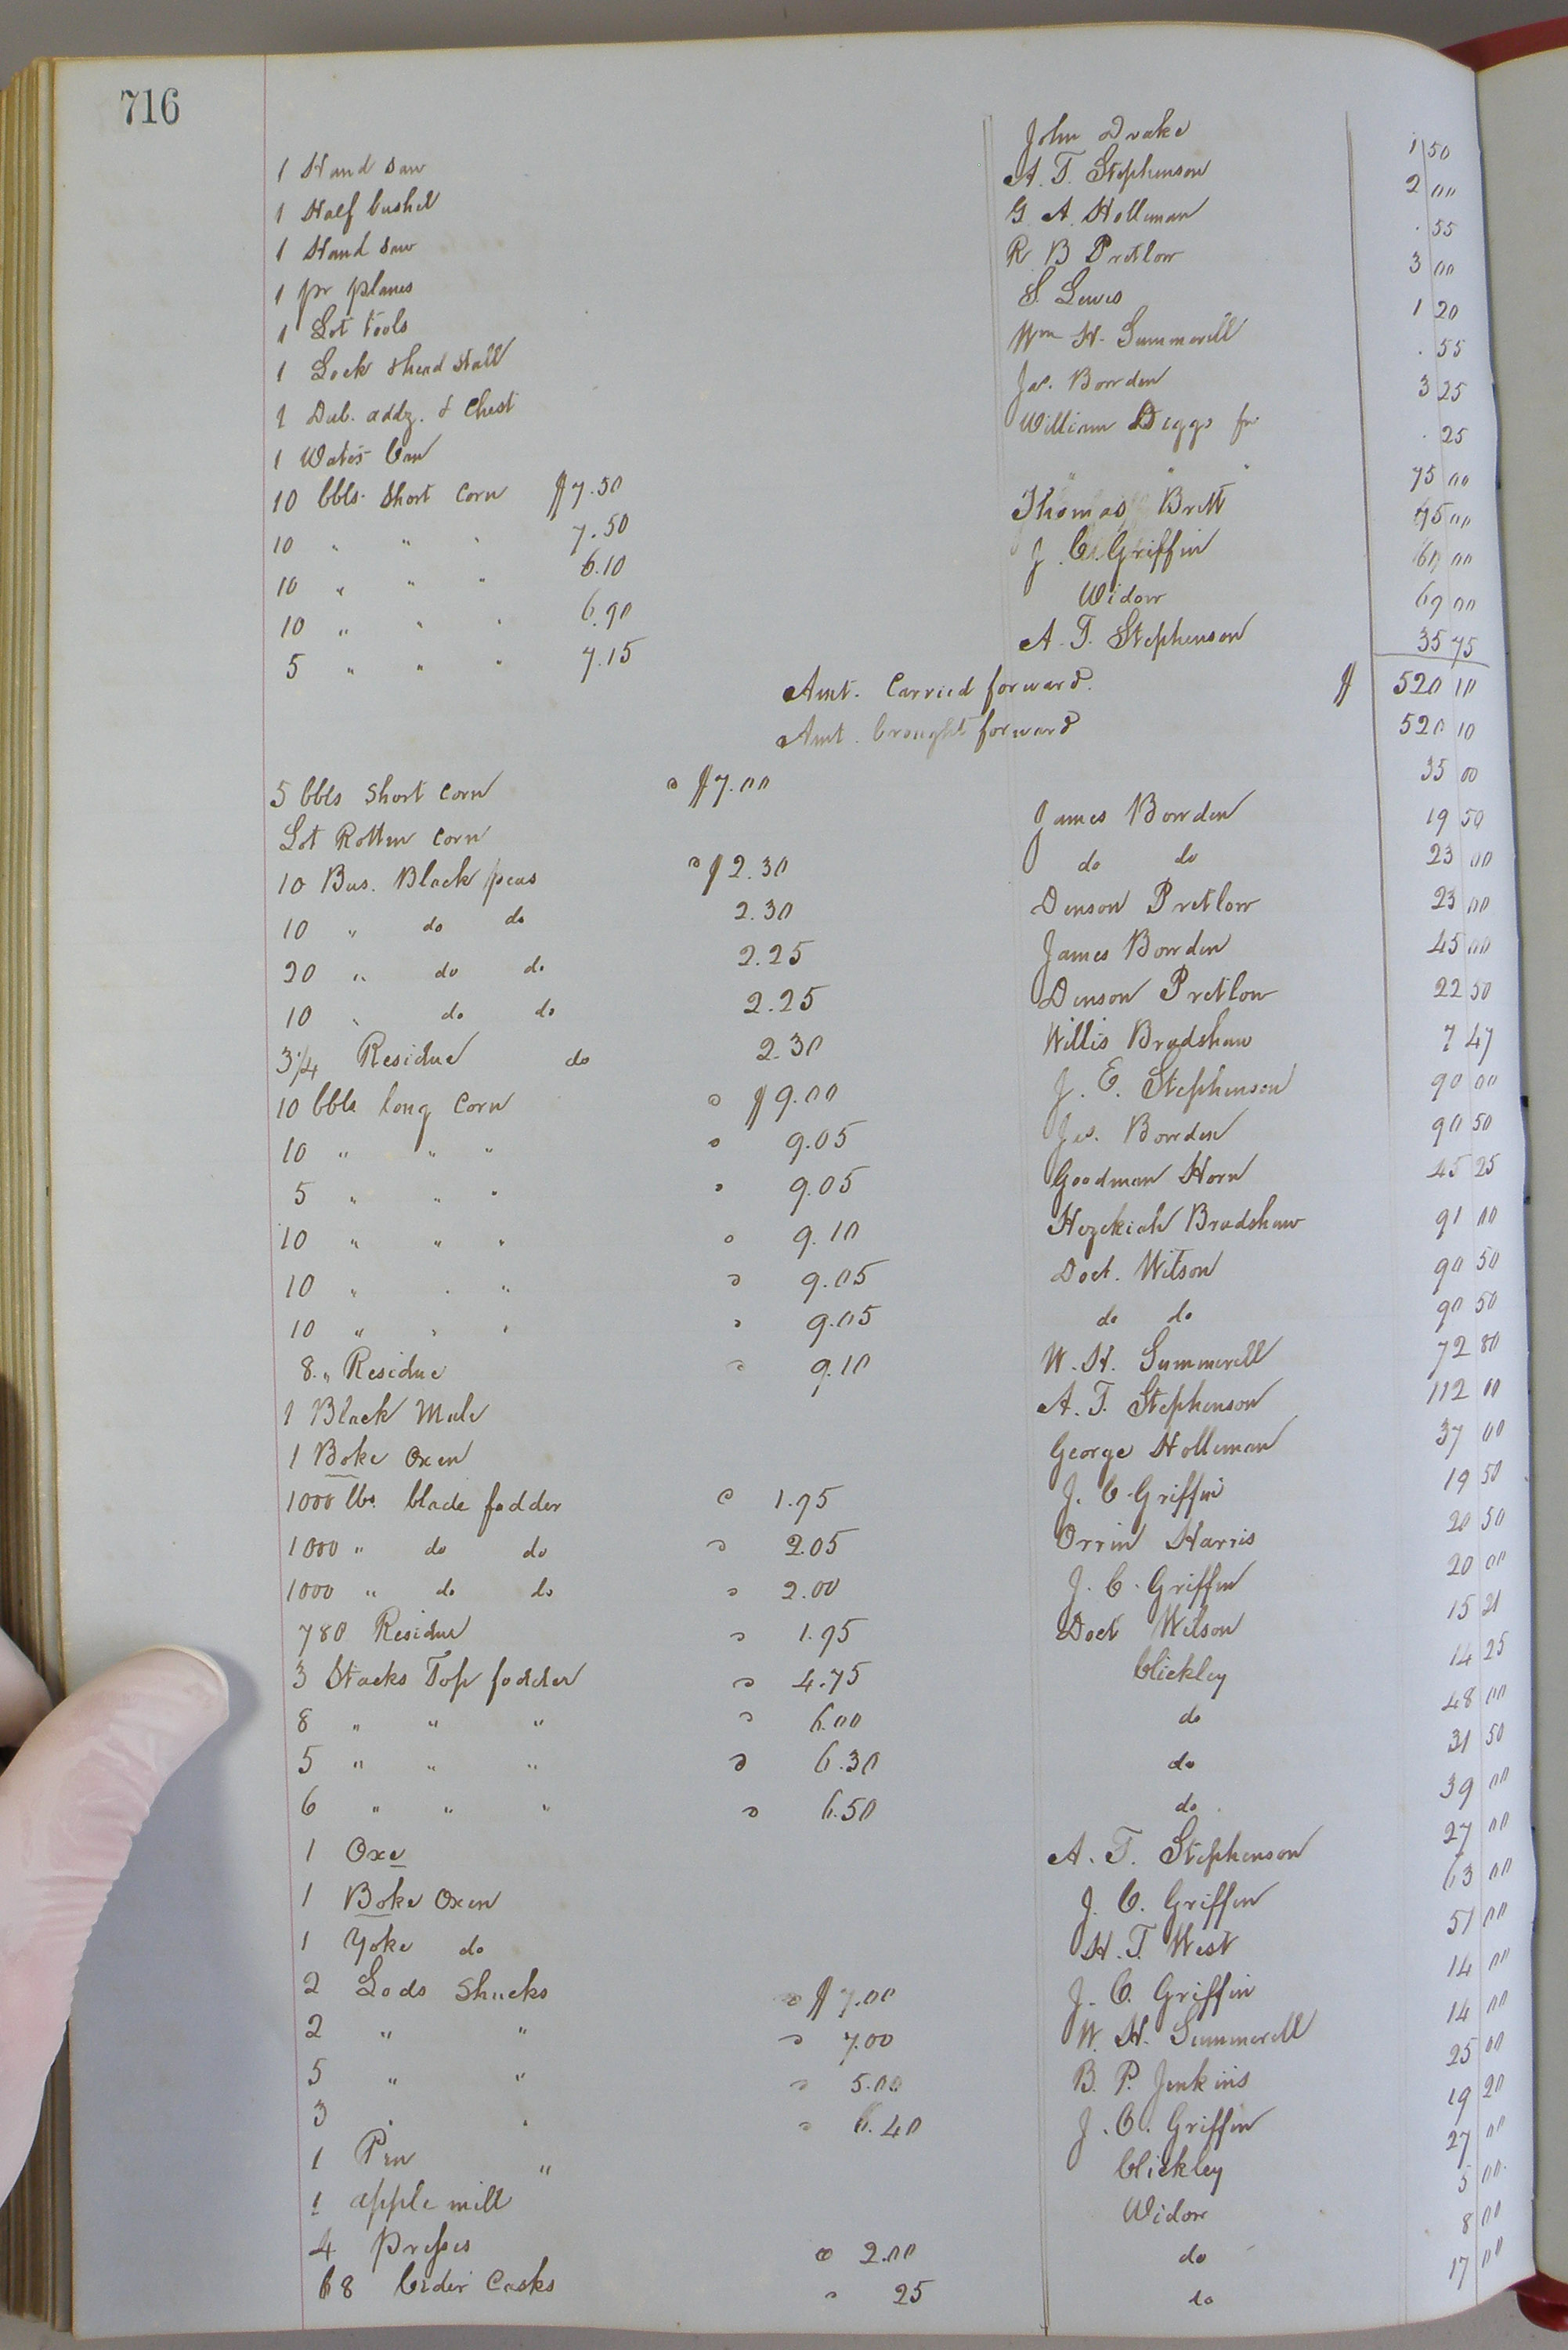 716
John Drake 1 50
1 Hand Saw A. T. Stephenson 2 00
1 Half bushel G. A. Holleman . 55
1 Hand Saw R B Pretlow 3 00
1 pr planes S. Lewis 1 20
1 Lot Tools Wm H. Summerell . 55
1 Lock & head Stall Jas. Bowden 3 25
1 Dub. addz. & Chest William Diggs fr . 25
1 Water Can " " " 75 00
10 bbls. Short Corn $7.50 Thomas Britt 75 00
10 " " " 7.50 J. C. Griffin 61 00
10 " " " 6.10 Widow 69 00
10 " " " 6.90 A. T. Stephenson 35 75
5 " " " 7.15
Amt. Carried forward. $ 520 10
Amt. brought forward 520 10
5 bbls Short Corn @ $7.00 James Bowden 35 00
Lot Rotten Corn do do 19 50
10 Bus. Black peas @ $2.30 Denson Pretlow 23 00
10 " do do 2.30 James Bowden 23 00
20 " do do 2.25 Denson Pretlow 45 00
10 " do do 2.25 Willis Bradshaw 22 50
3 1/4 Residue do 2.30 J. E. Stephenson 7 47
10 bbls long Corn @ $9.00 Jas. Bowden 90 00
10 " " " @ 9.05 Goodman Horn 90 50
5 " " " @ 9.05 Hezekiah Bradshaw 45 25
10 " " " @ 9.10 Doct. Wilson 91 00
10 " " " @ 9.05 do do 90 50
10 " " " @ 9.05 W. H. Summerell 90 50
8 " Residue @ 9.10 A. T. Stephenson 72 80
1 Black Mule George Holleman 112 00
1 Boke Oxen J. C. Griffin 37 00
1000 lbs. blade fodder @ 1.95 Orrin Harris 19 50
1000 " do do @ 2.05 J. C. Griffin 20 50
1000 " do do @ 2.00 Doct Wilson 20 00
780 Residue @ 1.95 15 21
3 Stacks Top fodder @ 4.75 Blickley 14 25
8 " " " @ 6.00 do 48 00
5 " " " @ 6.30 do 31 50
6 " " " @ 6.50 do 39 00
1 Oxe A. T. Stephenson 27 00
1 Boke Oxen J. C. Griffin 63 00
1 Yoke do H. T. West 51 00
2 Lods Shucks @ $7.00 J. C. Griffin 14 00
2 " " @ 7.00 W. H. Summerell 14 00
5 " " @ 5.00 B. P. Jenkins 25 00
3 " " @ 6.40 J. C. Griffin 19 20
1 Pen " Blickley 27 00
1 apple mill Widow 5 00
4 Presses @ 2.00 do 8 00
68 Cider Casks @ 25 do 17 00